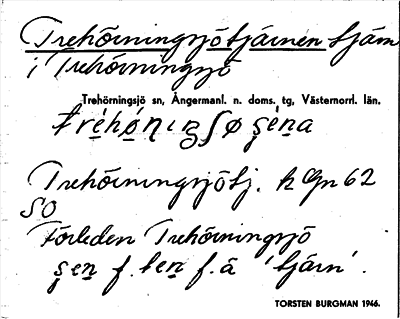 Trehörningsjötjärnen tjärn
i Trehörningsjö
Trehörningsjö sn, Ångermanl. n. doms. tg, Västernorrl. län.
Trehörningsjötj. k Gn 62
SO
Förleden Trehörningsjö
f. f. å 'tjärn'.
TORSTEN BURGMAN 1946.